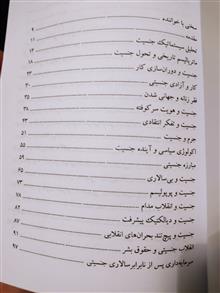 سخنی با خواننده
مقدمه ۹
تحلیل سیستماتیک جنسیت ۱۱
ماتریالیسم تاریخی و تحول جنسیت ۱۴
جنسیت و دوران‌سازی کار ۱۸
کار و آزادی جنسیتی ۲۳
فقر زنانه و جهانی شدن ۳۰
جنسیت و هویت سرکوفته ۳۵
جنسیت و تفکر انتقادی ۳۸
جرم و جنسیت ۴۳
اکولوژی سیاسی و آینده جنسیت ۵۱
مبارزه جنسیتی ۵۵
جنسیت و بی‌سالاری ۵۹
جنسیت و پوپولیسم ۶۵
جنسیت و انقلاب مدام ۷۳
جنسیت و دیالکتیک پیشرفت ۷۸
جنسیت و پیچ‌تند بحران‌های انقلابی ۸۷
انقلاب جنسیتی و حقوق بشر ۹۱
سرمایه‌داری پس از نابرابرسالاری جنسیتی ۹۷